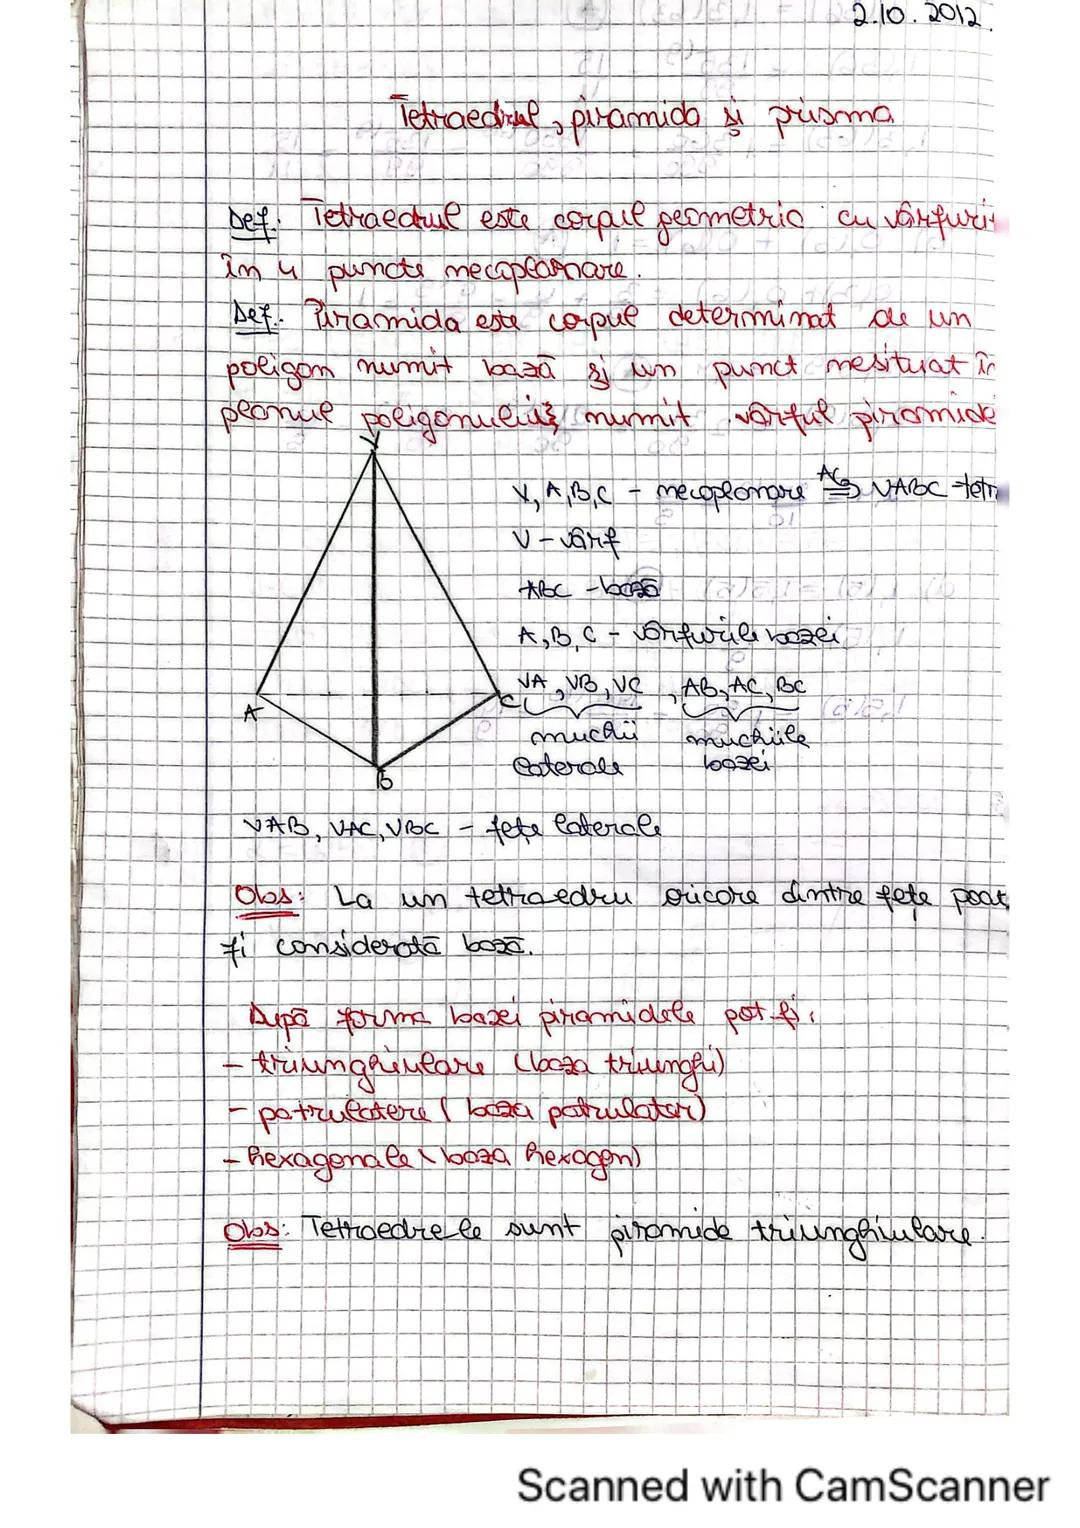 2.10.2012.
Tetraedrul, piramida și prisma
Def: Tetraedrul este corpul geometric cu vârfuri
în 4 puncte necoplanare.
Def: Piramida este corpul determinat de un
poligon numit bază și un punct nesituat în
planul poligonului numit vârful piramide
V
V, A, B, C - necoplanare ⇒ VABC - tetr
V - vârf
ABC - bază
A, B, C - vârfurile bazei
VA, VB, VC , AB, AC, BC
A
C
muchii muchiile
laterale bazei
B
VAB, VAC, VBC - fețe laterale
Obs: La un tetraedru oricare dintre fețe poat
fi considerată bază.
După forma bazei piramidele pot fi:
- triunghiulare (baza triunghi)
- patrulatere (baza patrulater)
- hexagonale (baza hexagon)
Obs: Tetraedrele sunt piramide triunghiulare.
Scanned with CamScanner